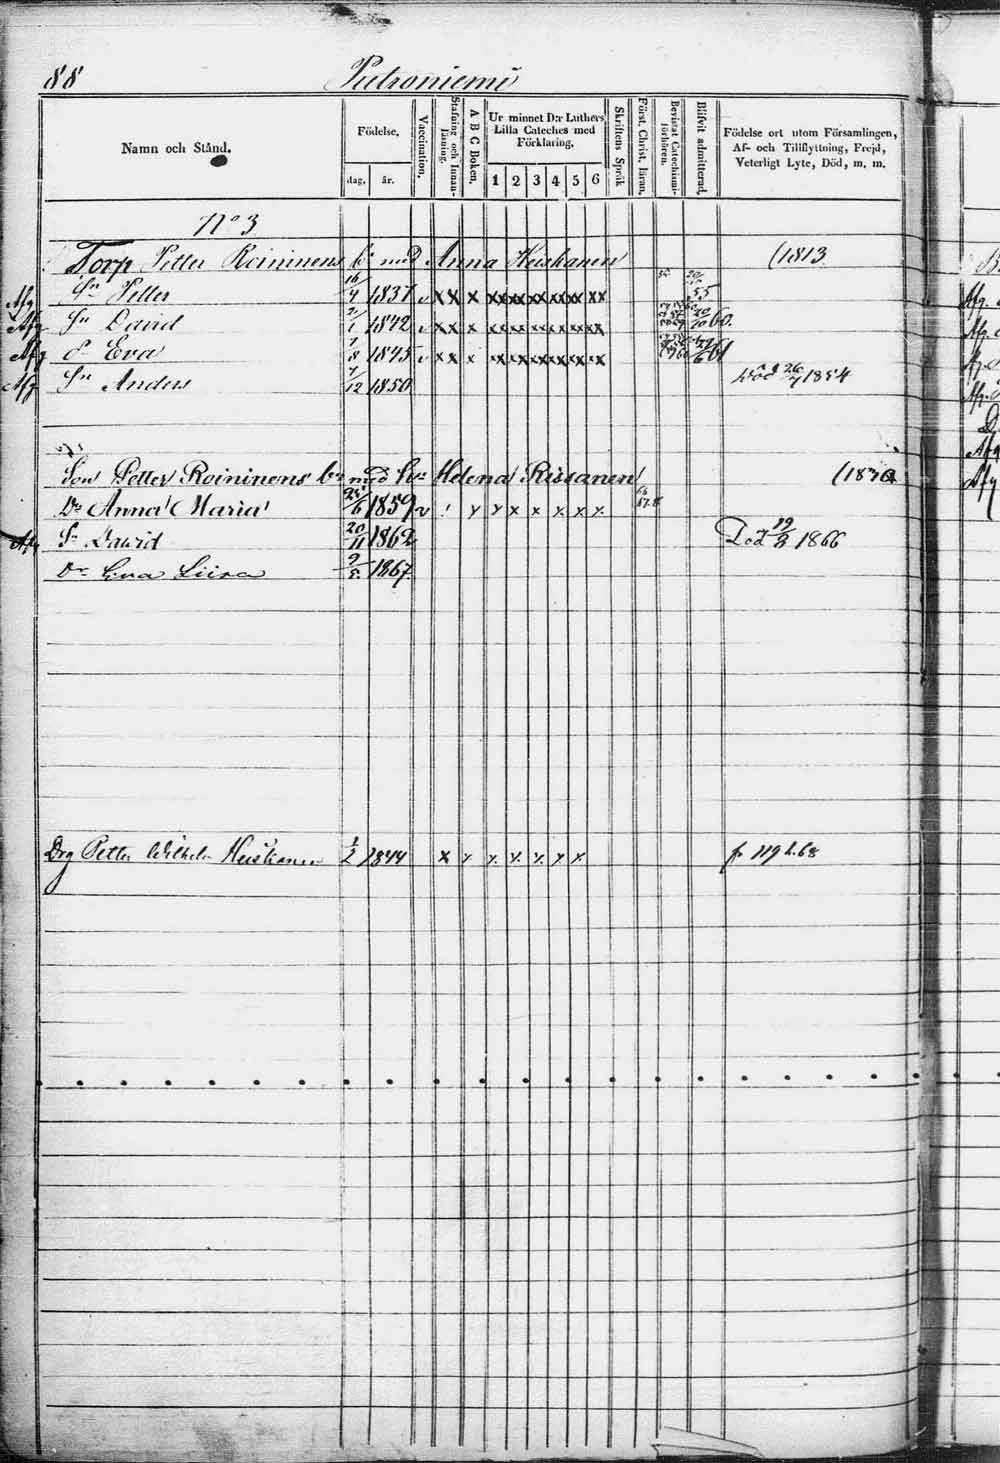 88 Pietroniemi
Namn och Stånd.
Födelse.
dag. år.
Vaccination.
Stafning och Innanläsning.
A B C Boken.
Ur minnet D:r Luthers Lilla Cateches med Förklaring.
1 2 3 4 5 6
Skriftens Språk
Först. Christ. läran.
Bevistat Catechismiförhören.
Blifvit admitterad.
Födelse ort utom Församlingen, Af- och Tillflyttning, Frejd, Veterligt Lyte, Död, m. m.
No 3
Torp Petter Roininens br med Anna Heiskanen (1813
Afg Sn Petter 16/4 1837 v x x x xx xx xx xx xx xx 55
Afg Sn David 2/1 1842 v x x x x x x x x x 20/10 60.
Afg dr Eva 1/8 1845 v x x x x x x x x x 61
Afg Sn Anders 7/12 1850 Död 26/7 1854
Son Petter Roininens br med hu Helena Rissanen (1830
Dr Anna Maria 25/6 1859 v ! x x x x x x x
Afg Sn David 20/11 1862 Död 19/8 1866
Dr Eva Liisa 9/5 1867
Drg Petter Wilhelm Heiskanen 1/2 1844 x x x x x x x fr 119 h. 68